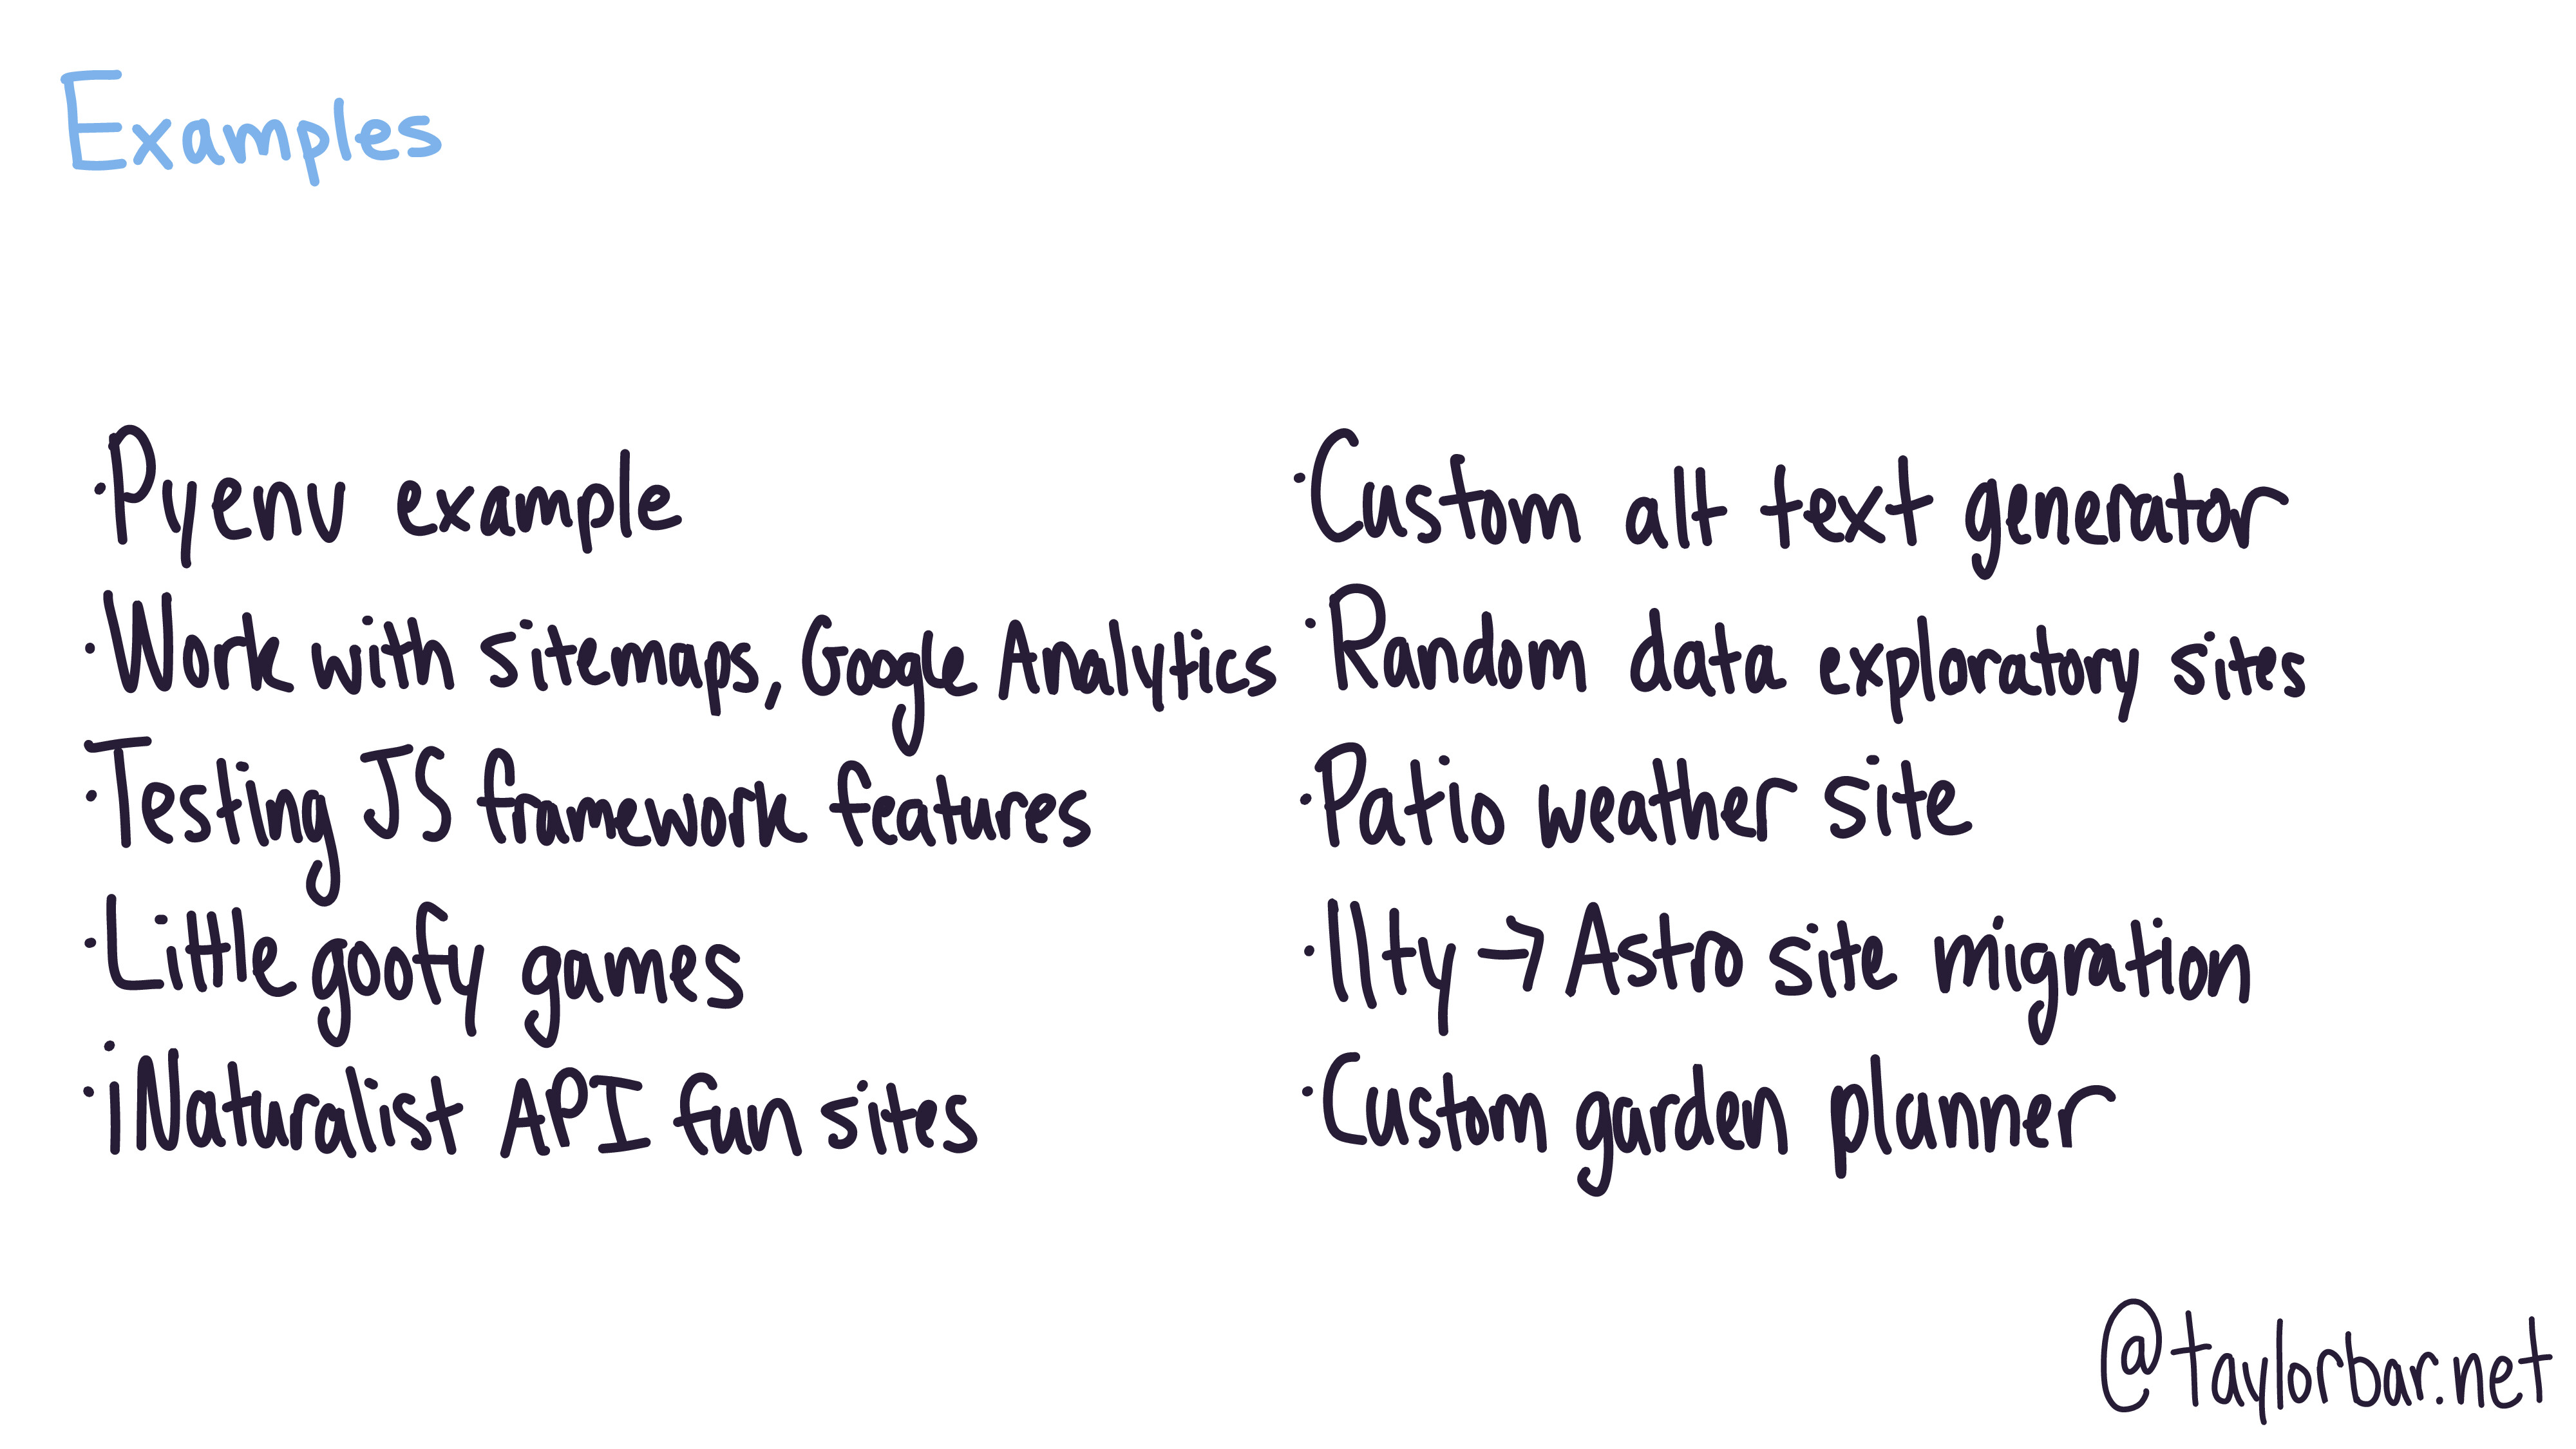 Examples
·Pyenv example
·Work with sitemaps, Google Analytics
·Testing JS framework features
·Little goofy games
·iNaturalist API fun sites
·Custom alt text generator
·Random data exploratory sites
·Patio weather site
·11ty → Astro site migration
·Custom garden planner
@taylorbar.net